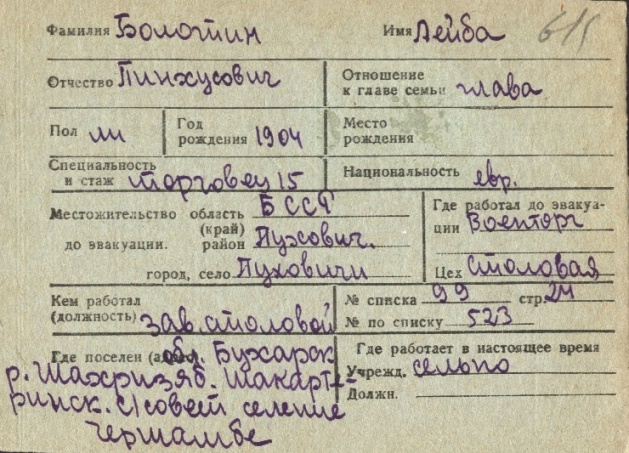 Фамилия Болотин Имя Лейба 611
Отчество Пинхусович Отношение к главе семьи глава
Пол м Год рождения 1904 Место рождения
Специальность и стаж торговец 15 Национальность евр.
Местожительство до эвакуации. область (край) БССР
район Пухович.
город, село Пуховичи
Где работал до эвакуации Военторг
Цех Столовая
Кем работал (должность) зав. столовой № списка 99 стр. 24
№ по списку 523
Где поселен (адрес) обл. Бухарск
р. Шахризяб. Шакарте-
ринск. с/совет селение
Чершамбе
Где работает в настоящее время
Учрежд. сельпо
Должн.